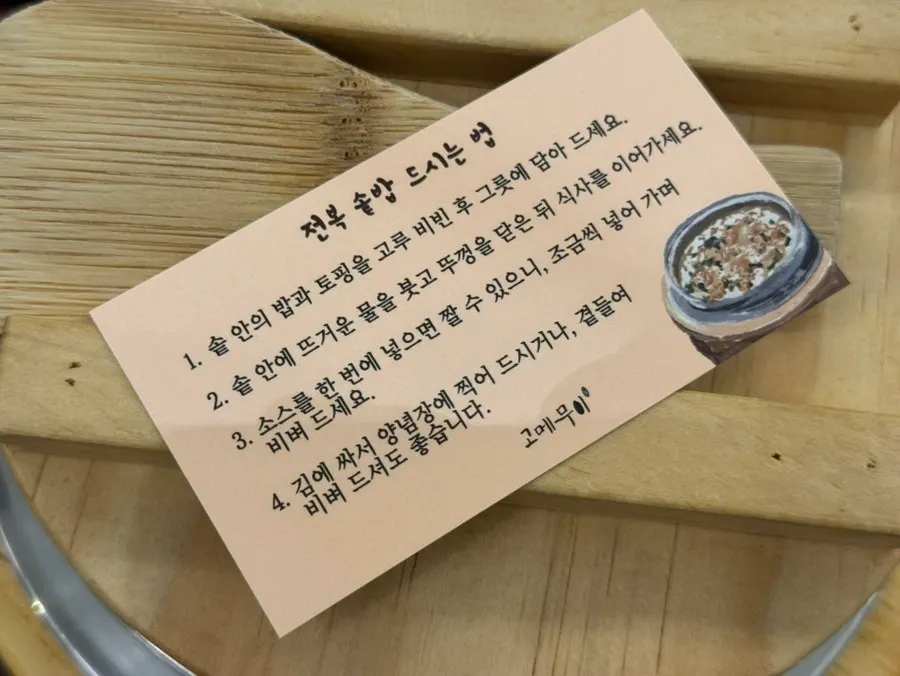 전복 솥밥 드시는 법
1. 솥 안의 밥과 토핑을 고루 비빈 후 그릇에 담아 드세요.
2. 솥 안에 뜨거운 물을 붓고 뚜껑을 닫은 뒤 식사를 이어가세요.
3. 소스를 한 번에 넣으면 짤 수 있으니, 조금씩 넣어 가며
비벼 드세요.
4. 김에 싸서 양념장에 찍어 드시거나, 곁들여
비벼 드셔도 좋습니다.
고메무이